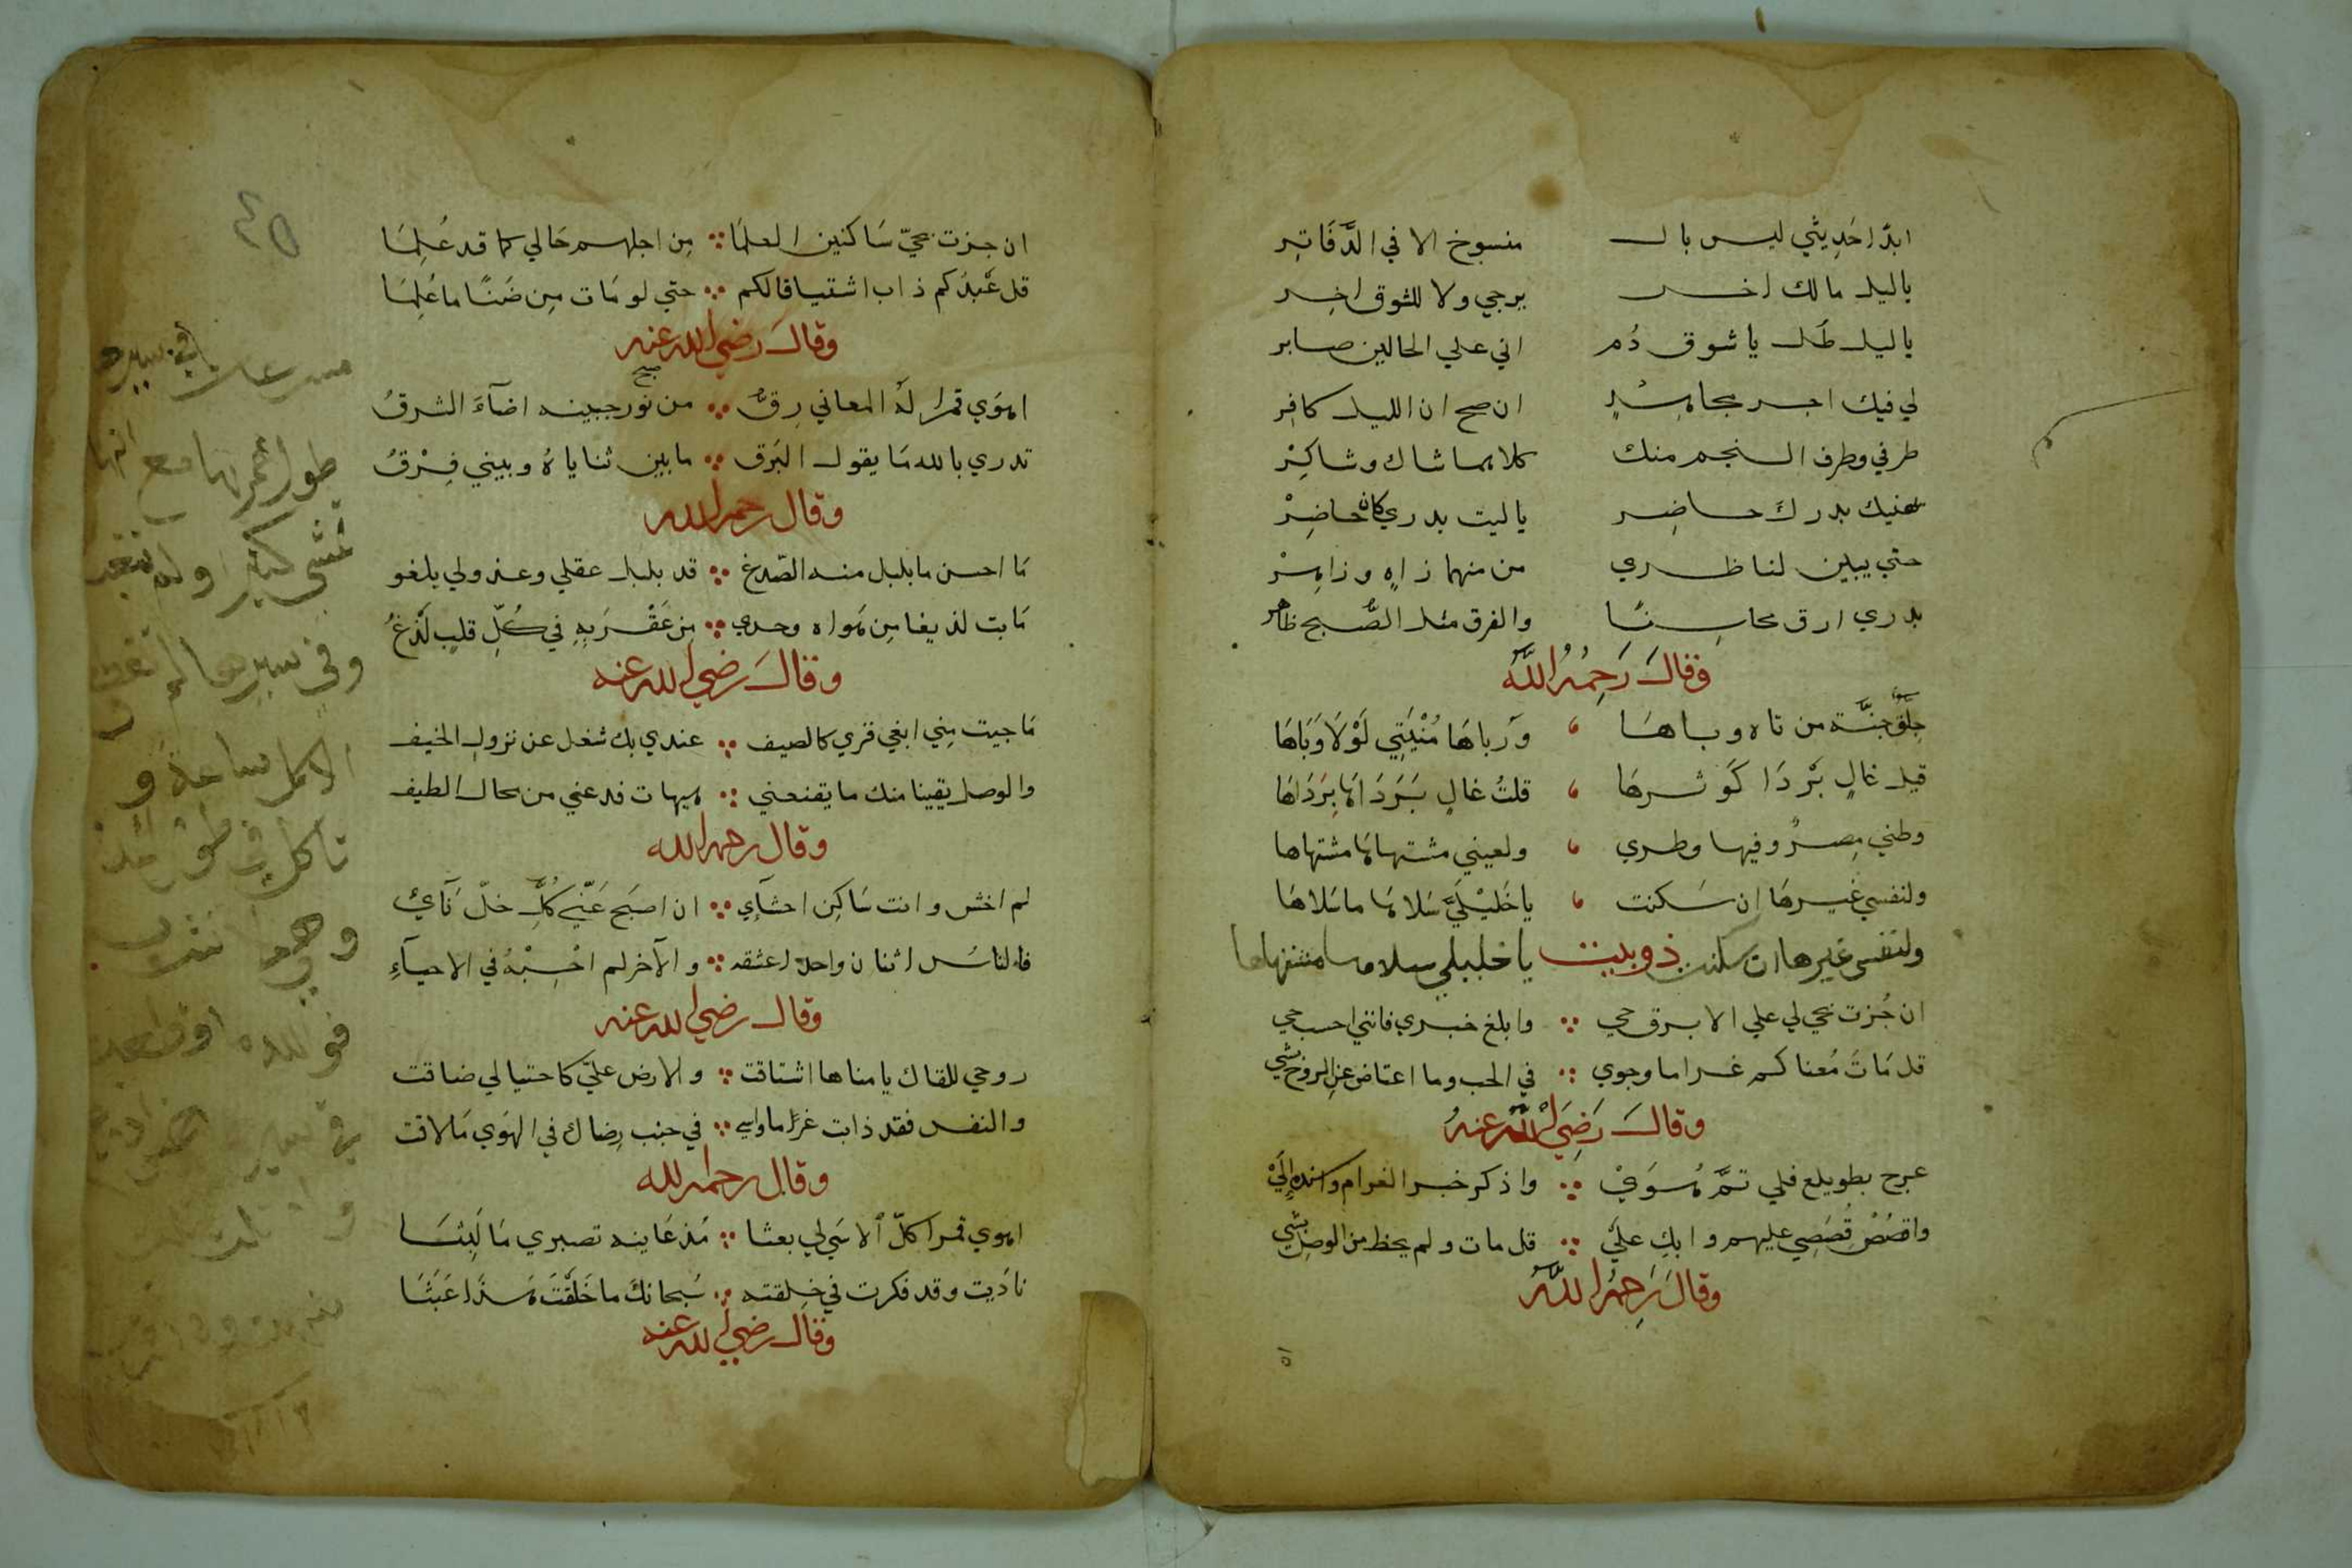 ابدًا حَدِيثي ليس بالـ منسوخ الا في الدَّفَاتِر
ياليل مالك اخر يرجي ولا للشوق اخِر
ياليل طل ياشوق دُم اني علي الحالين صابر
لي فيك اجر مجاهِدٍ ان صح ان الليل كافِر
طرفي وطرف النجم منك كلاهما شاك وشاكِرْ
يهنيك بدرك حاضِر ياليت بدري كان حاضِرْ
حتي يبين لناظري من منهما زاهٍ وزاهِرْ
بدري ارق محاسِنًا والفرق مثل الصُّبح ظاهر
وقال رَحِمُه اللَّه
جِلَّقُ جنَّة من تاه وباهَا ورباهَا مُنْيَتِي لَوْلَا وَبَاهَا
قيل غالٍ بَرْدَا كَوثرهَا قلتُ غالٍ بَرَدَاهَا بِرَدَاهَا
وطني مِصرٌ وفيها وطري ولعيني مشتهاها مشتهاها
ولنفسي غيرهَا ان سَكنت ياخَلَيْلَيَّ سَلاهَا ماسَلاهَا
ولنفسي غيرها ان سكنت ذوبيت ياخليلي سلاها مشتهاها
ان جُزت بحي لي علي الابرق حي وابلغ خبري فانني احسب حي
قل مَاتَ مُعناكم غراما وجوي في الحب وما اعتاض عن الروح بشي
وقال رَضِيَ اللَّه عنهُ
عرج بطويلع فلي تمَّ هُوَيْ واذكر خبر الغرام واسنده إِلَيْ
واقصُصْ قِصَصِي عليهم وابكِ عليَّ قل مات ولم يحظ من الوصل بشي
وقال رَحِمَهُ اللَّه
٥١
٤٥
ان جزت بحيّ سَاكنين العلمَا مِن اجلهم حَالي كما قد عُلِمَا
قل عَبْدُكم ذاب اشتياقا لكم حتي لو مَات مِن ضَنًا ما عُلِمَا
وقال رَضي الله عنه
اهوَي قمرا لَهُ المعاني رِقُّ من نور جبينه اضآءَ الشرقُ صح
تدري بالله مَا يقول البَرَق مابين ثناياهُ وبيني فِرْقُ
وقال رحمه الله
مَا احسن مابلبل منه الصّدغ قد بلبل عقلي وعذولي يلغو
مَا بت لذيغا مِن هَواه وحدي مِن عَقْرَبِهِ في كُلِّ قلبٍ لَدْغُ
وقالَ رضي الله عنه
مَا جيت مِني ابغي قري كالضيف عندي بك شغل عن نزولِ الخيف
والوصل يقينا منك ما يقنعني هيهات فدعني من محال الطيف
وقال رحمه الله
لم اخش وانت سَاكِن احشآءِي ان اصبَح عَنّي كُلُّ خلّ نَآئي
فالناسُ اثنان واحدٌ اعشقه والآخر لم احْسِبْهُ في الاحيآءِ
وقال رضي الله عنه
روحي للقاك يامناها اشتاقت والارض عليّ كاحتيالي ضاقت
والنفس فقد ذابت غرَاما واسي في جنب رِضاك في الهَوي مَا لاقت
وقال رحمه الله
اهوي قمرا كلّ الاسَي لي بعثا مُذ عَاينه تصبري مَا لَبِثَا
نادَيت وقد فكرت في خِلقته سُبحانك ما خَلَقْتَ هَذَا عَبَثَا
وقال رضي الله عنه
طول عمرها مع انها
تمشي كثير ولم تتعب
وفي سيرها لم